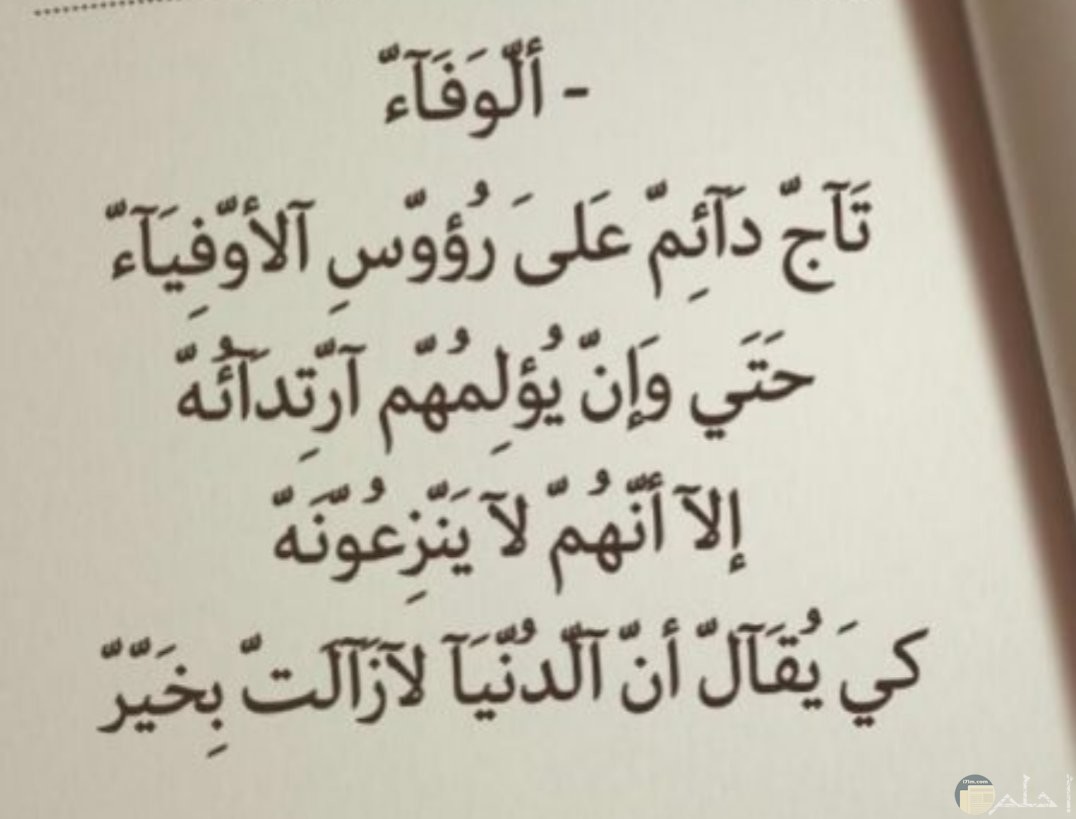 - ألّوَفَآءّ
تَآجّ دَآئِمّ عَلىَ رُؤوّسِ آلأوّفِيَآءّ
حَتَي وَإنّ يُؤلِمُهّم آرّتِدَآئُهّ
إلآ أنّهُمّ لآ يَنّزِعُوّنَهّ
كيَ يُقَآلّ أنّ آلّدُنّيَآ لآزَآلَتّ بِخَيّرّ
احلم